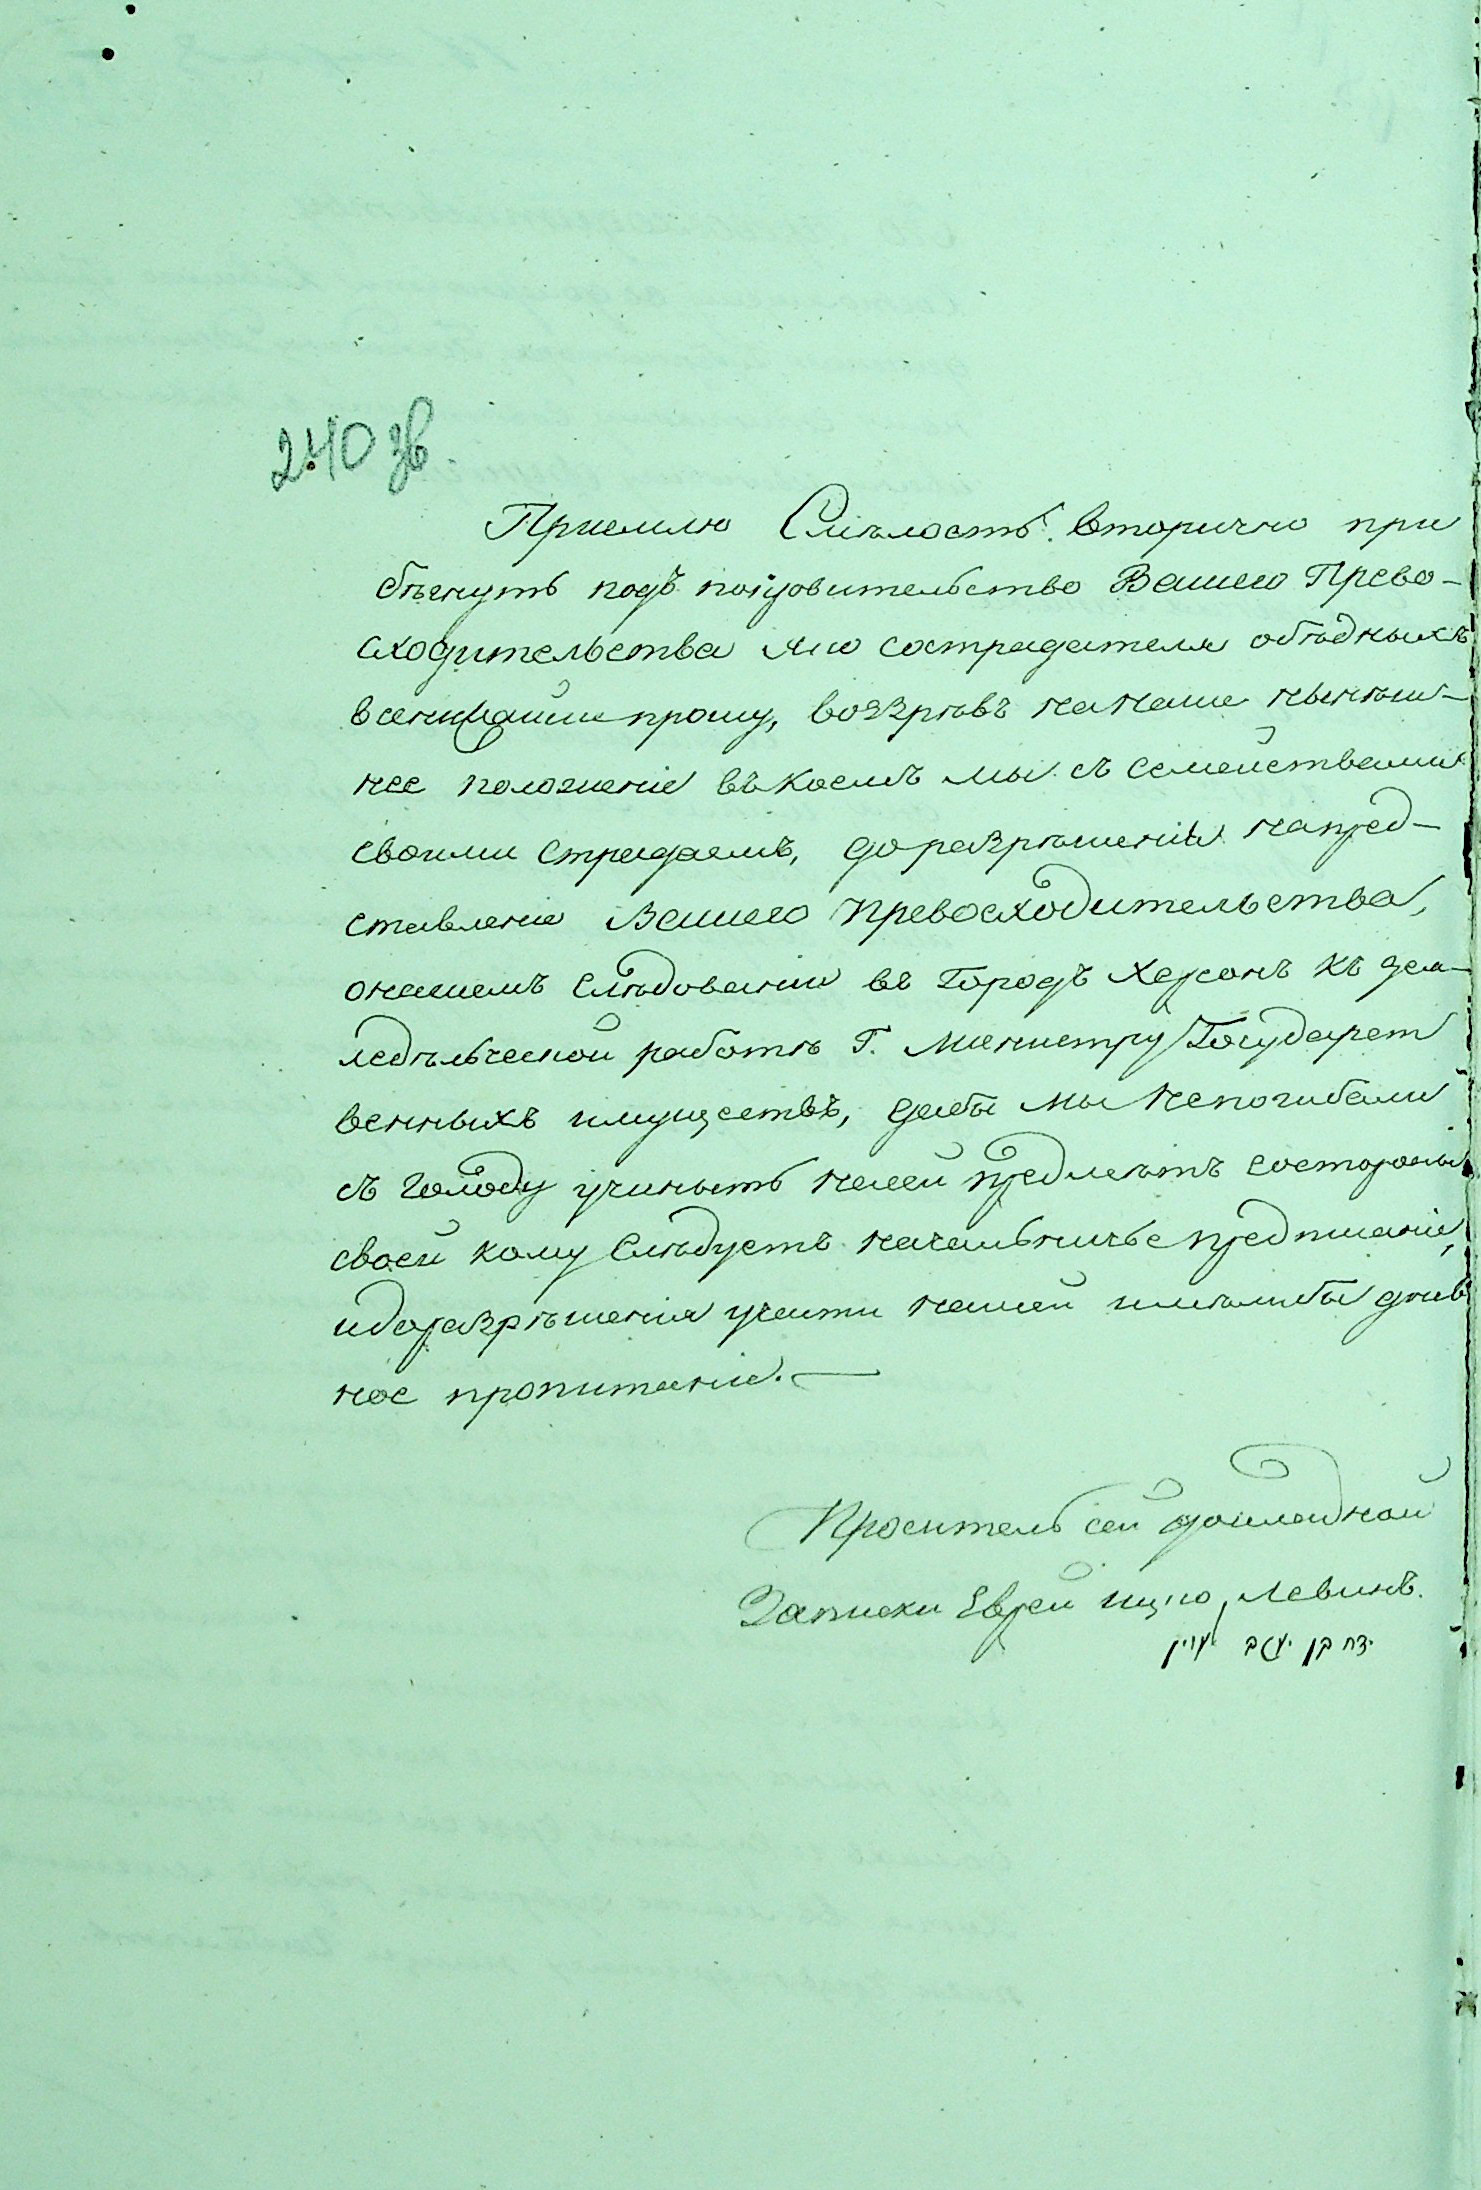 240 зв
Приемлю Смѣлость вторично при
бѣгнуть подъ покровительство Вашего Прево-
сходительства яко сострадателя обѣдныхъ
всенижайше прошу, воззрѣвъ на наше нынѣш-
нее положеніе въ коемъ мы съ семействами
своими страдаемъ, до разрѣшенія на пред-
ставленіе Вашего Превосходительства,
о нашемъ слѣдованіи въ Городъ Херсонъ къ зем-
ледѣльческой работѣ Г. Министру Государст
венныхъ имуществъ, дабы мы не погибали
съ голоду учинить состороны
своей кому Слѣдуетъ начальничье предписаніе,
и до разрѣшенія участи нашей имѣли бы днев
ное пропитаніе.—
Проситель сей докладной
Записки Еврей Ицко Левинъ.
בן לוין